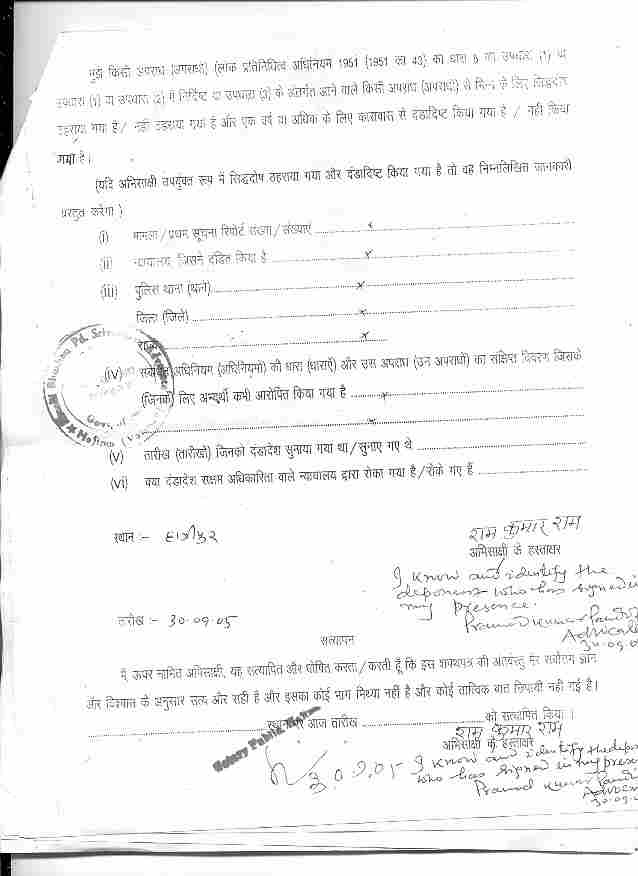 मुझे किसी अपराध (अपराधों) (लोक प्रतिनिधित्व अधिनियम 1951 (1951 का 43) की धारा 8 की उपधारा (1) या
उपधारा (1) या उपधारा (2) में निर्दिष्ट या उपधारा (3) के अंतर्गत आने वाले किसी अपराध (अपराधों) से भिन्न के लिए सिद्धदोष
ठहराया गया है / नहीं ठहराया गया है और एक वर्ष या अधिक के लिए कारावास से दंडादिष्ट किया गया है / नहीं किया
गया है।
(यदि अभिसाक्षी उपर्युक्त रूप में सिद्धदोष ठहराया गया और दंडादिष्ट किया गया है तो वह निम्नलिखित जानकारी
प्रस्तुत करेगा)
(i) मामला / प्रथम सूचना रिपोर्ट संख्या / संख्याएं x
(ii) न्यायालय जिसने दंडित किया है x
(iii) पुलिस थाना (थाने) x
जिला (जिले) x
राज्य x
(iv) संबंधित अधिनियम (अधिनियमों) की धारा (धाराएँ) और उस अपराध (उन अपराधों) का संक्षिप्त विवरण जिसके
(जिनके) लिए अभ्यर्थी कभी आरोपित किया गया है x
x
(v) तारीख (तारीखें) जिनको दंडादेश सुनाया गया था / सुनाए गए थे
(vi) क्या दंडादेश सक्षम अधिकारिता वाले न्यायालय द्वारा रोका गया है / रोके गए हैं
स्थान :- हाजीपुर
राम कुमार राम
अभिसाक्षी के हस्ताक्षर
I know and identify the
deponent who has signed in
my presence.
Pramod Kumar
Advocate
30.09.05
तारीख :- 30.09.05
सत्यापन
मैं ऊपर नामित अभिसाक्षी, यह सत्यापित और घोषित करता / करती हूँ कि इस शपथपत्र की अंतर्वस्तु मेरे सर्वोत्तम ज्ञान
और विश्वास के अनुसार सत्य और सही है और इसका कोई भाग मिथ्या नहीं है और कोई तात्विक बात छिपायी नहीं गई है।
स्थान पर आज तारीख को सत्यापित किया।
Notary Public
राम कुमार राम
अभिसाक्षी के हस्ताक्षर
30.9.05
I know and identify the depo
who has signed in my prese
Pramod Kumar
Advoca
30.09.0